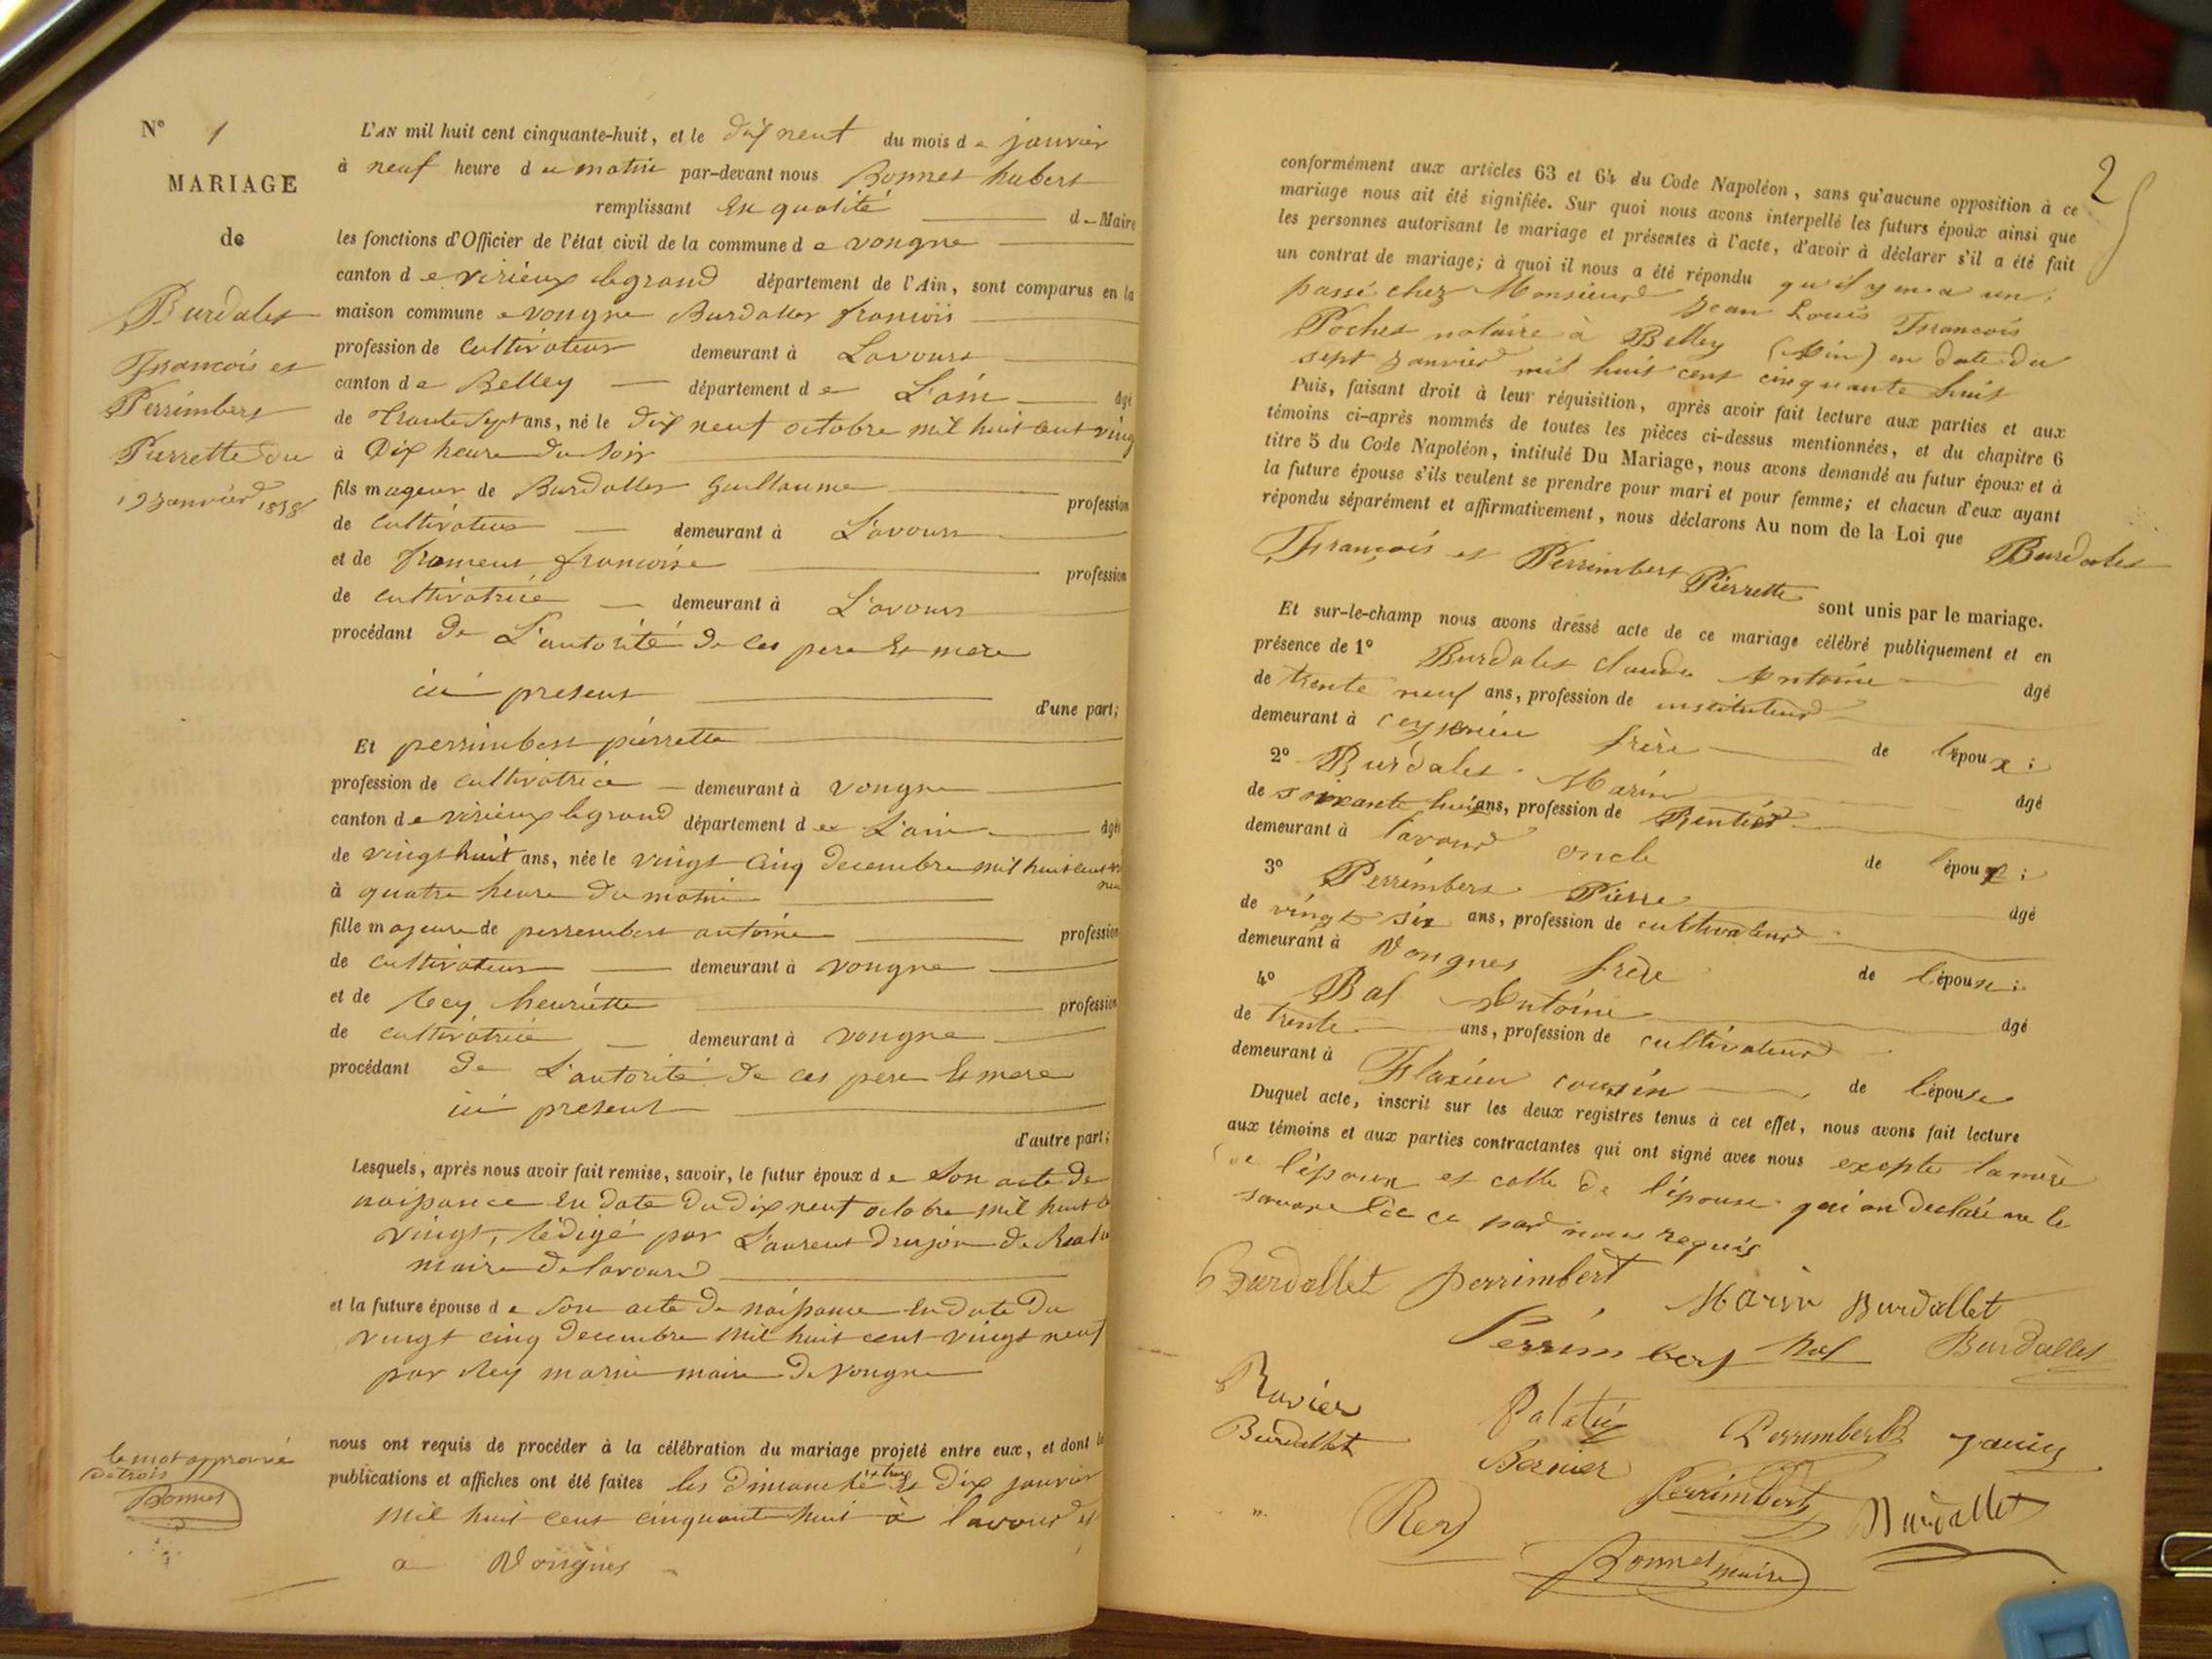 N° 1
MARIAGE
de
Burdalet
François et
Perrimbert
Pierrette du
19 janvier 1858
L'AN mil huit cent cinquante-huit, et le dix neuf du mois de janvier
à neuf heure du matin par-devant nous Bonnet hubert
remplissant En qualité de Maire
les fonctions d'Officier de l'état civil de la commune de vongne
canton de virieux legrand département de l'Ain, sont comparus en la
maison commune e vongne Burdallet francois
profession de Cultivateur demeurant à Lavours
canton de Belley département de L'ain âgé
de Trante sept ans, né le dix neuf octobre mil huit cent ving
à Dix heure du soir
fils mageur de Burdallet Guillaume profession
de cultivateur demeurant à L'avours
et de froment francoise profession
de cultivatrice demeurant à L'avours
procédant de L'autorité de ces pere Et mere
ici present d'une part;
Et perrimbert pierrette
profession de cultivatrice demeurant à vongne
canton de virieux legrand département de L'ain âgée
de vingt huit ans, née le vingt cinq decembre mil huit cent
à quatre heure du matin
fille majeure de perrembert antoine profession
de cultivateur demeurant à vongne
et de Rey henriette profession
de cultivatrice demeurant à vongne
procédant de L'autorité de ces pere Et mere
ici present
d'autre part;
Lesquels, après nous avoir fait remise, savoir, le futur époux de Son acte de
naissance En date du dix neuf octobre mil huit
vingt, rédigé par Laurent Drujon de
maire de lavours
et la future épouse de Son acte de naissance En date du
vingt cinq decembre mil huit cent vingt neuf
par Rey marin maire de vongne
nous ont requis de procéder à la célébration du mariage projeté entre eux, et dont
publications et affiches ont été faites les dimanche trois et Dix janvier
mil huit cent cinquante huit à lavour et
a Vongnes
le mot approuvé
de trois
Bonnet
2
conformément aux articles 63 et 64 du Code Napoléon, sans qu'aucune opposition à ce
mariage nous ait été signifiée. Sur quoi nous avons interpellé les futurs époux ainsi que
les personnes autorisant le mariage et présentes à l'acte, d'avoir à déclarer s'il a été fait
un contrat de mariage; à quoi il nous a été répondu qu'il y en a un
passé chez Monsieur Jean Louis François
Pochet notaire à Belley (Ain) en date du
sept janvier mil huit cent cinquante huit
Puis, faisant droit à leur réquisition, après avoir fait lecture aux parties et aux
témoins ci-après nommés de toutes les pièces ci-dessus mentionnées, et du chapitre 6
titre 5 du Code Napoléon, intitulé Du Mariage, nous avons demandé au futur époux et à
la future épouse s'ils veulent se prendre pour mari et pour femme; et chacun d'eux ayant
répondu séparément et affirmativement, nous déclarons Au nom de la Loi que Burdalet
François et Perrimbert Pierrette sont unis par le mariage.
Et sur-le-champ nous avons dressé acte de ce mariage célébré publiquement et en
présence de 1° Burdalet claude Antoine âgé
de trente neuf ans, profession de instituteur
demeurant à ceyzerieu frère de l'époux;
2° Burdalet Marin âgé
de soixante huit ans, profession de Rentier
demeurant à lavour oncle de l'époux;
3° Perrimbert Pierre âgé
de vingt six ans, profession de cultivateur
demeurant à Vongnes frère de l'épouse;
4° Bal Antoine âgé
de trente ans, profession de cultivateur
demeurant à Flaxieu cousin de l'épouse
Duquel acte, inscrit sur les deux registres tenus à cet effet, nous avons fait lecture
aux témoins et aux parties contractantes qui ont signé avec nous exepte la mère
de l'époux et celle de l'épouse qui on déclaré ne le
savoir de ce par nous requis
Burdallet perrimbert Marin Burdallet
Perrimbert Bal Burdallet
Ravier Perrimbert
Burdallet Bernier Perrimbert Burdallet
Rey
Bonnet maire